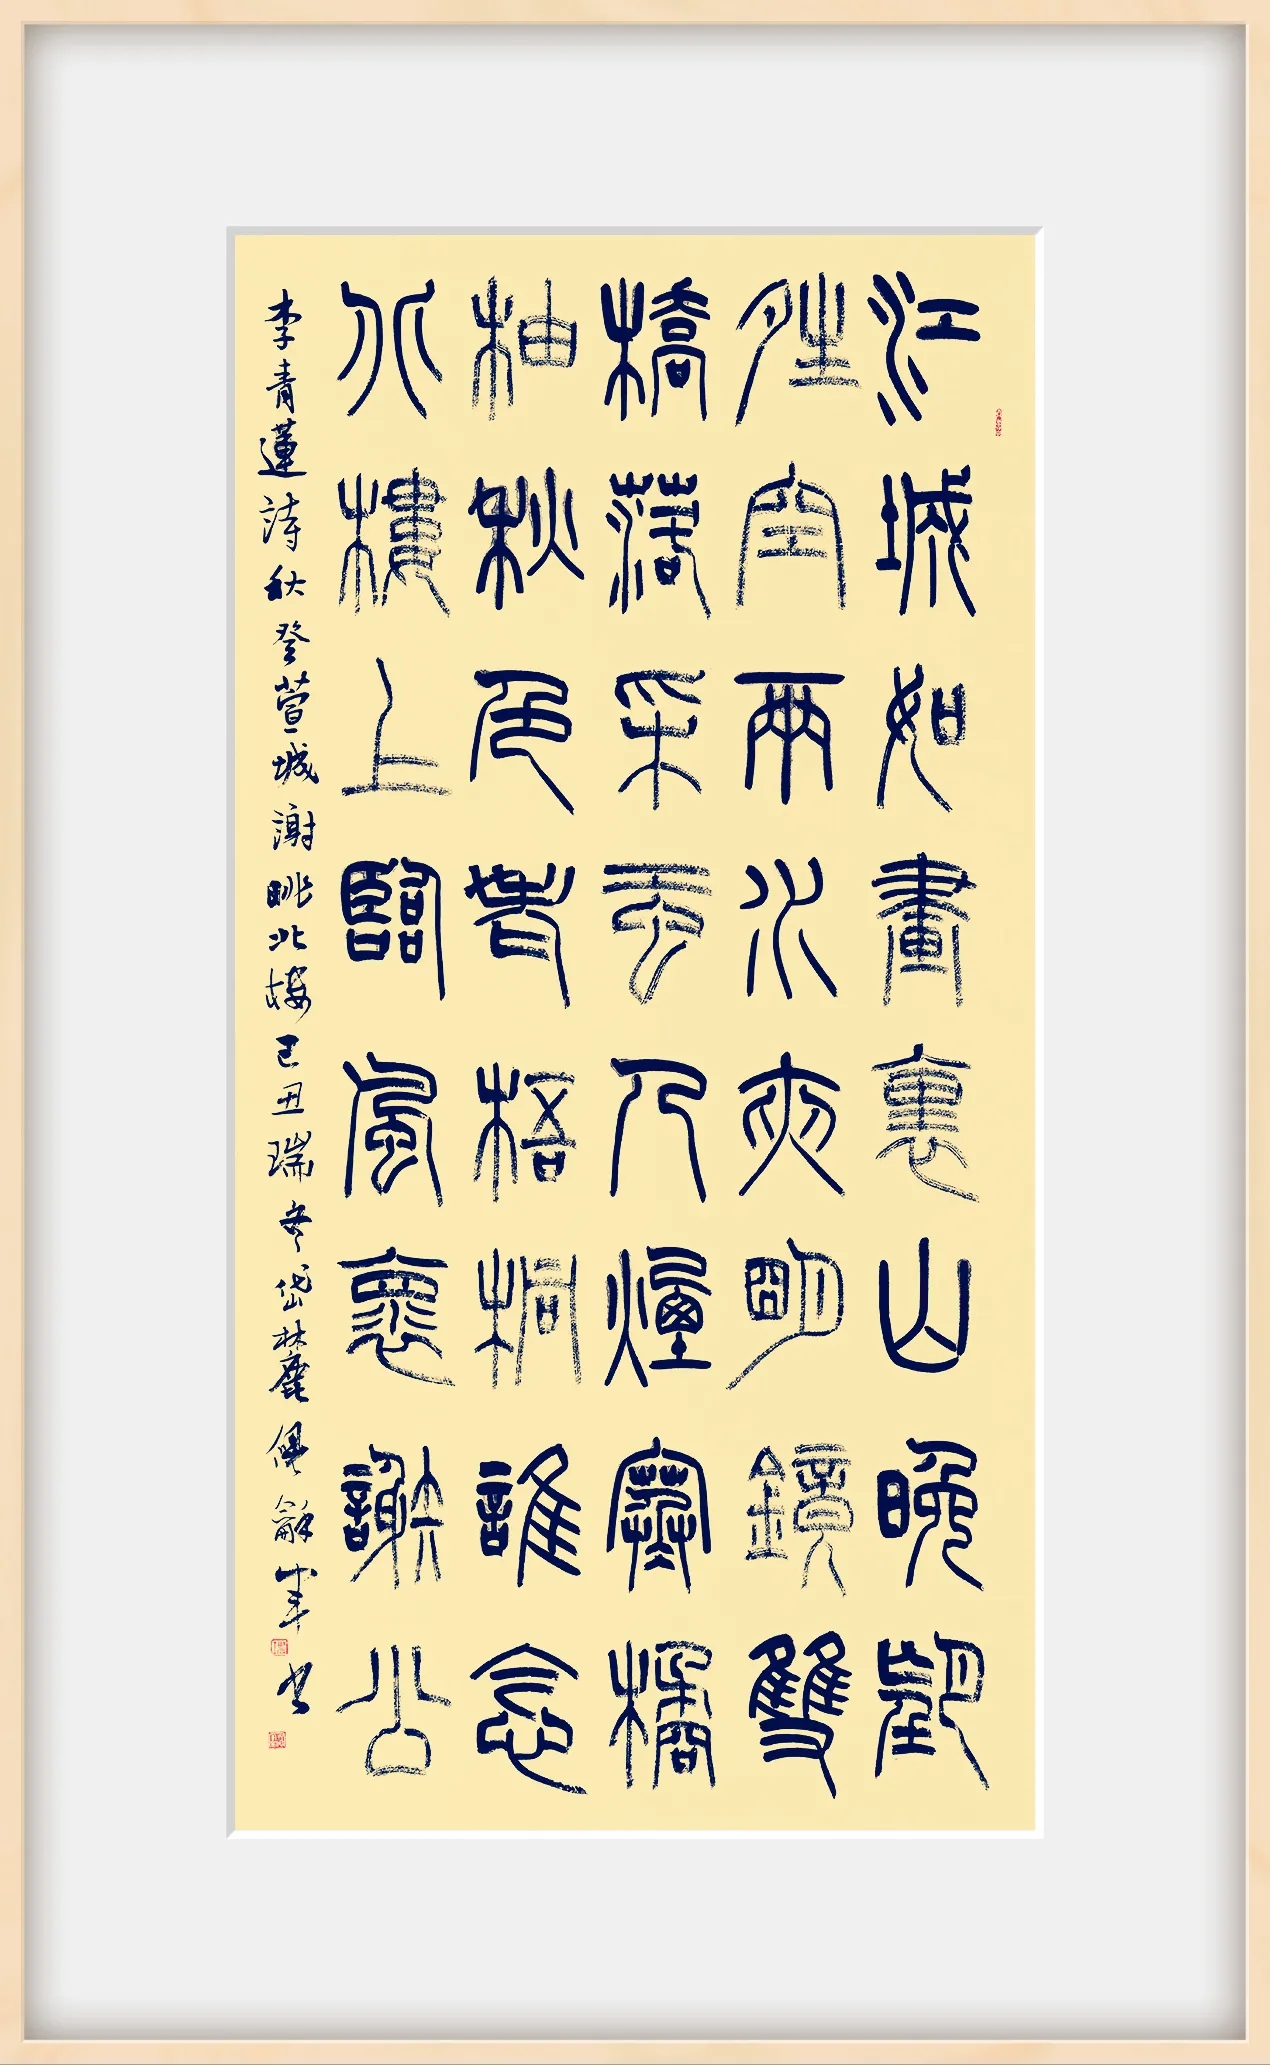 江城如畫裏山晚望
晴空兩水夾明鏡雙
橋落采虹人煙寒橘
柚秋色老梧桐誰念
北樓上臨風懷謝公
李青蓮詩秋登萱城謝眺北樓己丑瑞冬岱麓龢峯書